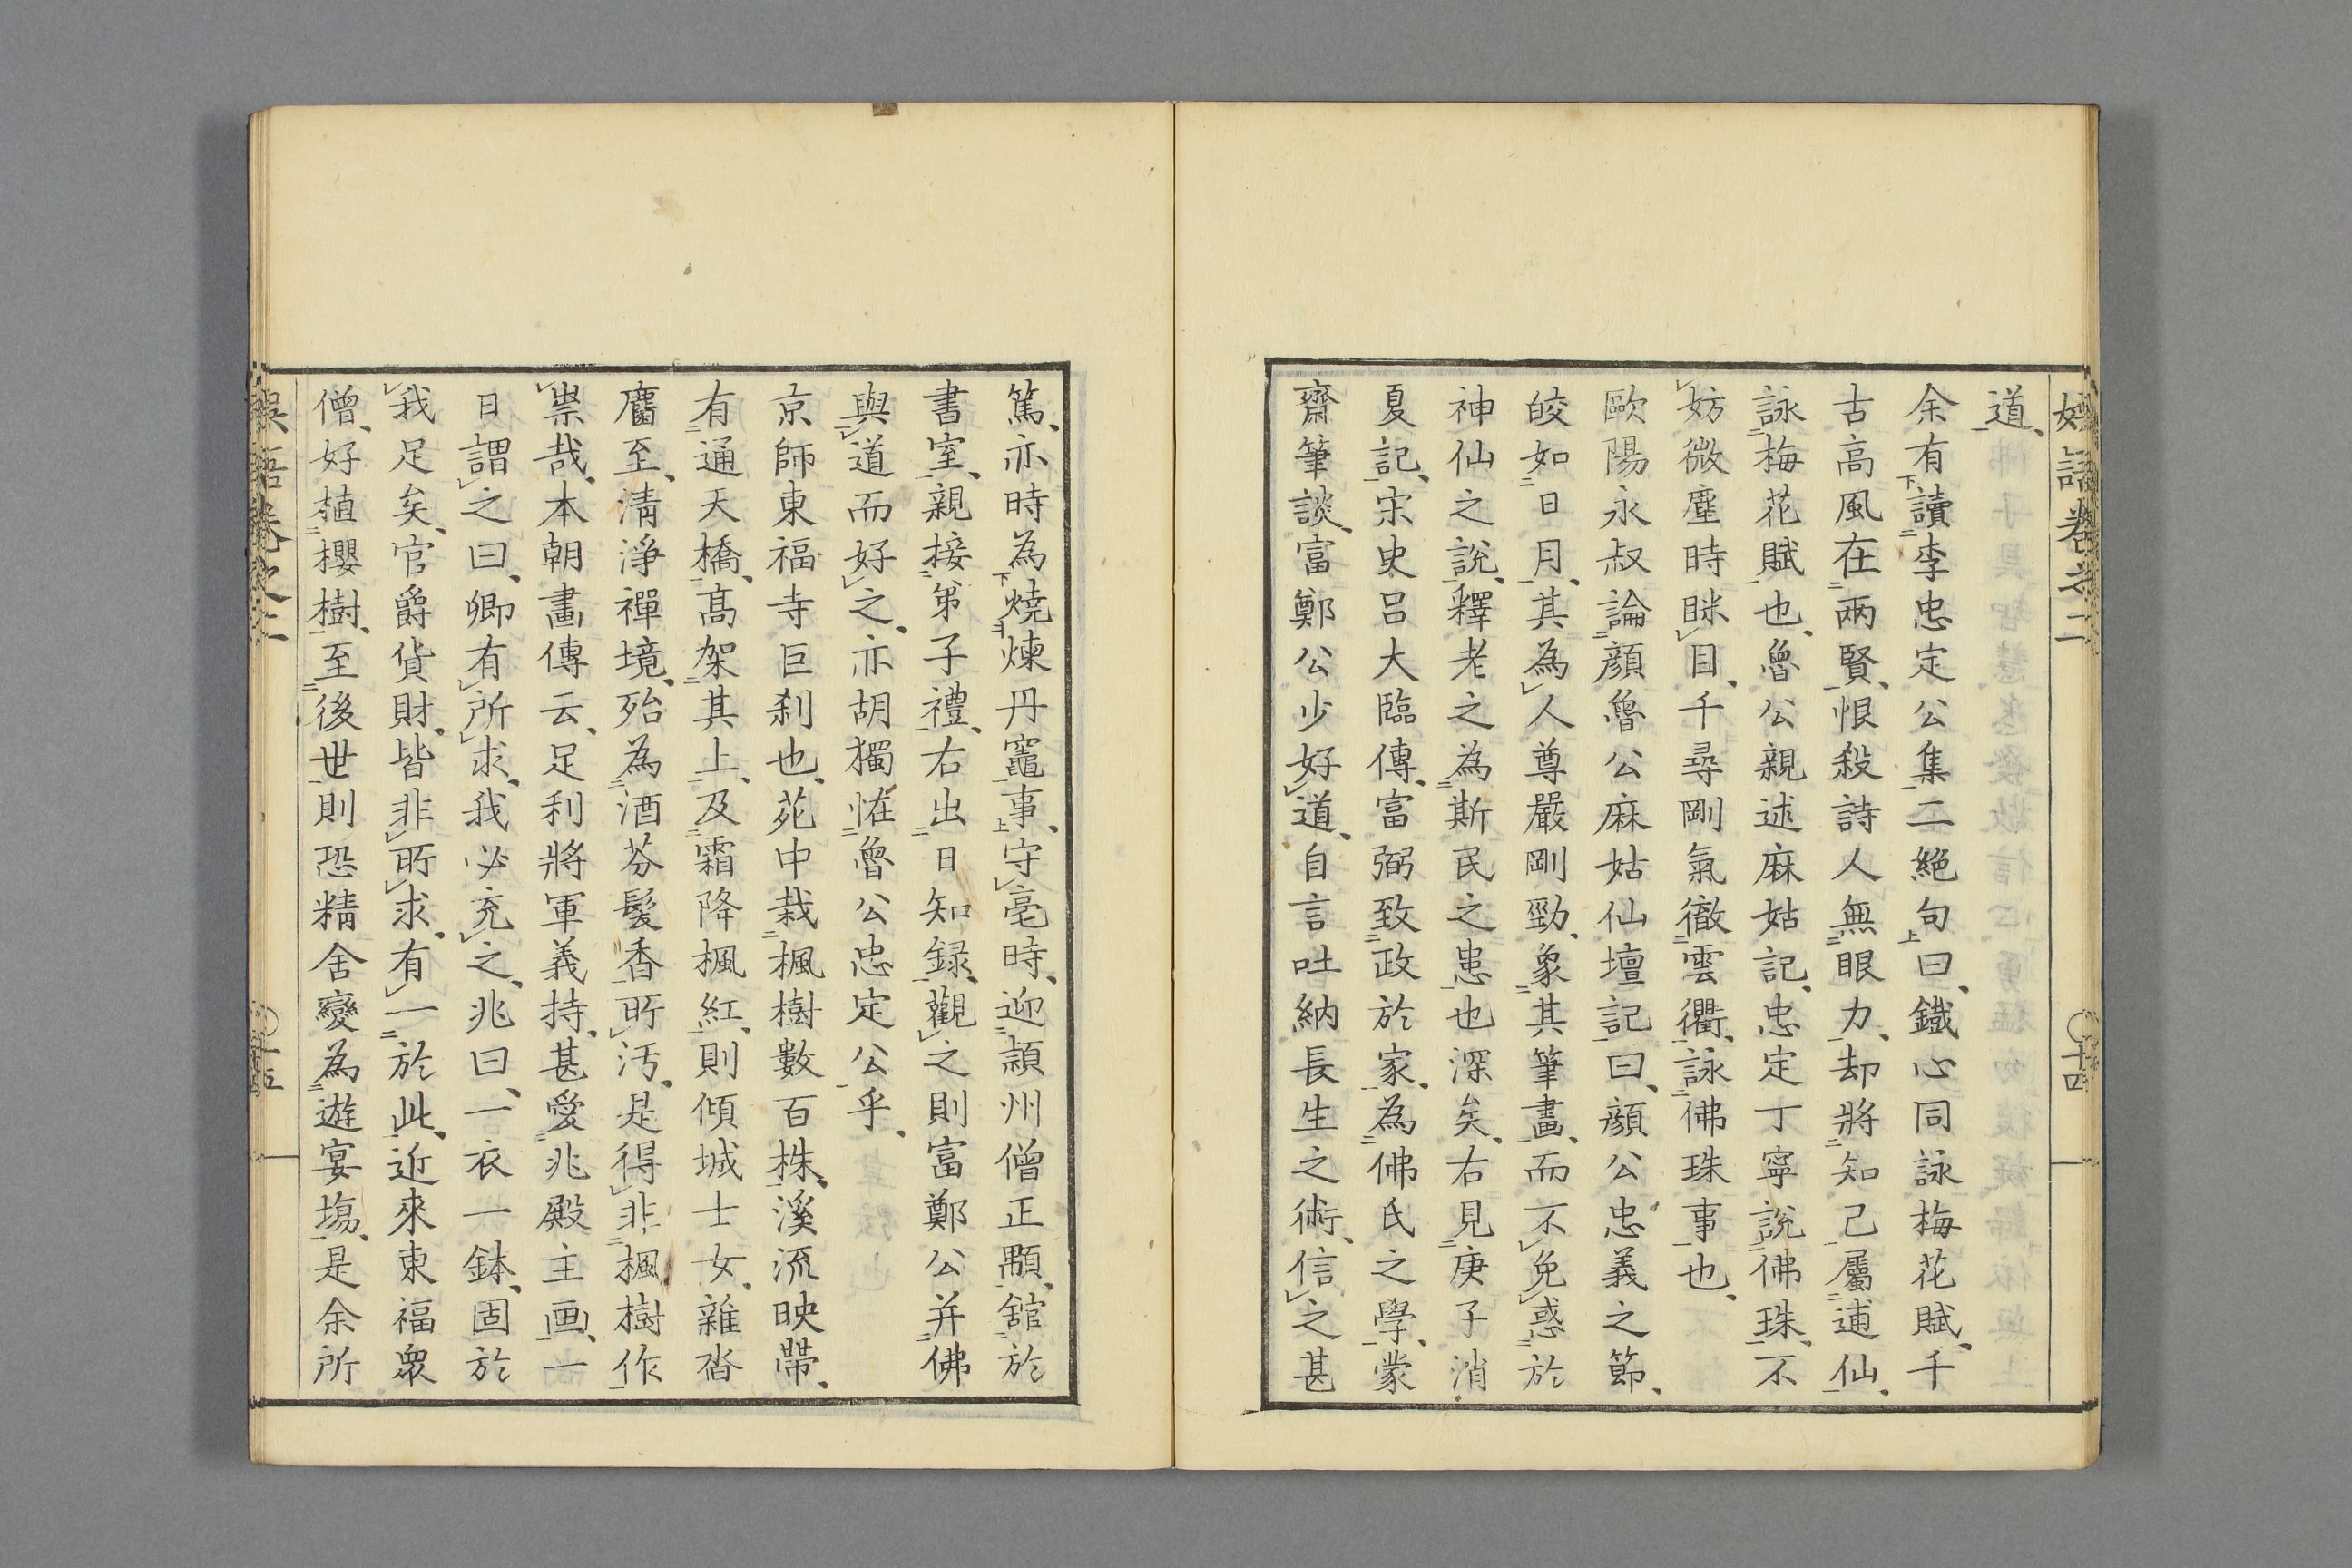 道、
余有讀李忠定公集二絶句曰、鐡心同詠梅花賦、千
古高風在兩賢、恨殺詩人無眼力、却將知己屬逋仙、
詠梅花賦也、魯公親述麻姑記、忠定丁寧說佛珠、不
妨微塵時眯目、千尋剛氣徹雲衢、詠佛珠事也、
歐陽永叔論顔魯公麻姑仙壇記曰、顔公忠義之節、
皎如日月、其為人尊嚴剛勁、象其筆畫、而不免惑於
神仙之說、釋老之為斯民之患也深矣、右見庚子消
夏記、宋史呂大臨傳、富弼致政於家、為佛氏之學、蒙
齋筆談、富鄭公少好道、自言吐納長生之術、信之甚
篤、亦時為燒煉丹竈事、守亳時、迎潁州僧正顒、舘於
書室、親接弟子禮、右出日知録、觀之則富鄭公并佛
與道而好之、亦胡獨恠魯公忠定公乎、
京師東福寺巨刹也、苑中栽楓樹數百株、溪流映帶、
有通天橋、髙架其上、及霜降楓紅、則傾城士女、雜沓
麕至、淸淨禪境、殆為酒芬髮香所汚、是得非楓樹作
祟哉、本朝畫傳云、足利將軍義持、甚愛兆殿主画、一
日謂之曰、卿有所求、我必充之、兆曰、一衣一鉢、固於
我足矣、官爵貨財、皆非所求、有一於此、近來東福衆
僧、好植櫻樹、至後世則恐精舍變為遊宴塲、是余所